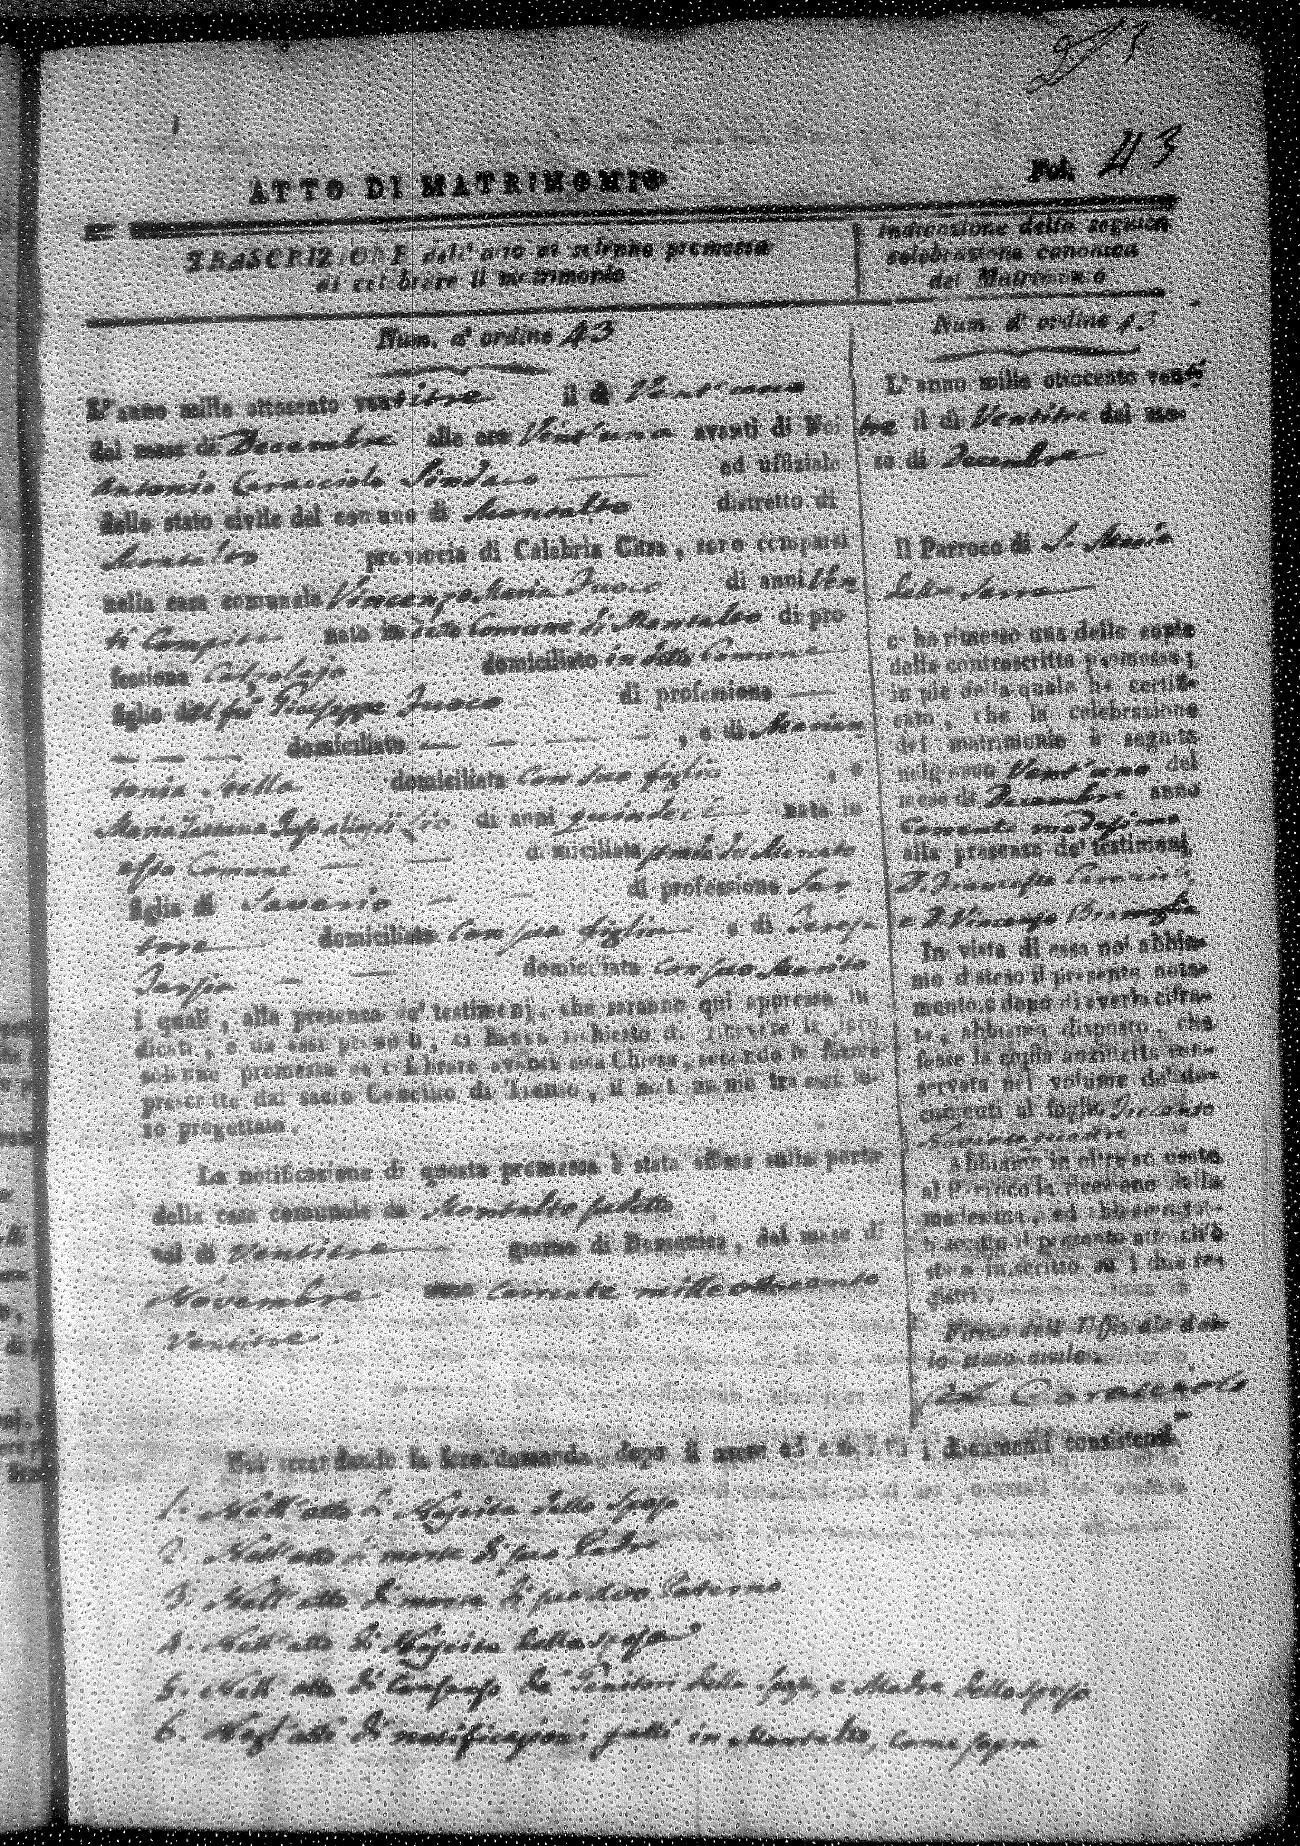 Fol. 43
ATTO DI MATRIMONIO
TRASCRIZIONE dell' atto di solenne promessa
di celebrare il matrimonio
Num. d' ordine 43
L' anno mille ottocento ventitre il dì Vent'uno
del mese di Decembre alle ore Vent'una avanti di Noi
Antonio Caracciolo Sindaco ed uffiziale
dello stato civile del comune di Montalto distretto di
provincia di Calabria Citra, sono comparsi
nella casa comunale Vincenzo Maria Fuoco di anni Ven
ti Compiti nato in detto Comune di Montalto di pro
fessione Calzolajo domiciliato in detto Comune
figlio del fu Giuseppe Fuoco di professione
domiciliato , e di Maria
tonia Stella domiciliata Con suo figlio , e
Maria di anni quindeci nata in
esso Comune domiciliata
figlia di Saverio di professione Sar
tore domiciliato Con sua figlia e di Teresa
domiciliata con suo Marito
i quali, alla presenza de' testimonj, che saranno qui appresso in
dicati, e da essi prodotti, ci hanno richiesto di ricevere la loro
solenne promessa di celebrare avanti alla Chiesa, secondo le forme
prescritte dal sacro Concilio di Trento, il matrimonio tra essi lo-
ro progettato.
La notificazione di questa promessa è stata affissa sulla porta
della casa comunale di Montalto
nel dì Ventitre giorno di Domenica, del mese di
Novembre Corrente mille ottocento
Ventitre.
Indicazione della seguita
celebrazione canonica
del Matrimonio
Num. d' ordine 43
L' anno mille ottocento venti
tre il dì Ventitre del me-
se di Decembre
Il Parroco di S. Maria
della Serra
ci ha rimesso una delle copie
della controscritta promessa;
in piè della quale ha certifi-
cato, che la celebrazione
del matrimonio è seguita
nel giorno Vent'uno del
mese di Decembre anno
Corrente medesimo
alla presenza de' testimonj
D. Francesco
e D. Vincenzo
In vista di essa noi abbia-
mo disteso il presente nota-
mento, e dopo di averla cifra-
ta, abbiamo disposto, che
fosse la copia anzidetta con-
servata nel volume de' do-
cumenti al foglio
Abbiamo in oltre accusato
al Parroco la ricezione della
medesima, ed abbiamo
il presente atto ch'è
stato inscritto su i due re-
gistri.
Firma dell' Uffiziale del-
lo stato civile.
Caracciolo
Noi secondando la loro domanda, dopo di aver ad essi letti i documenti consistenti
1. Nell' atto di Nascita dello sposo
2. Nell' atto di morte di suo Padre
3. Nell' atto di morte di suo Avo Paterno
4. Nell' atto di Nascita della sposa
5. Nell' atto di Consenso de' Genitori della sposa, e Madre dello sposo
6. Negli atti di notificazioni fatti in Montalto, come sopra